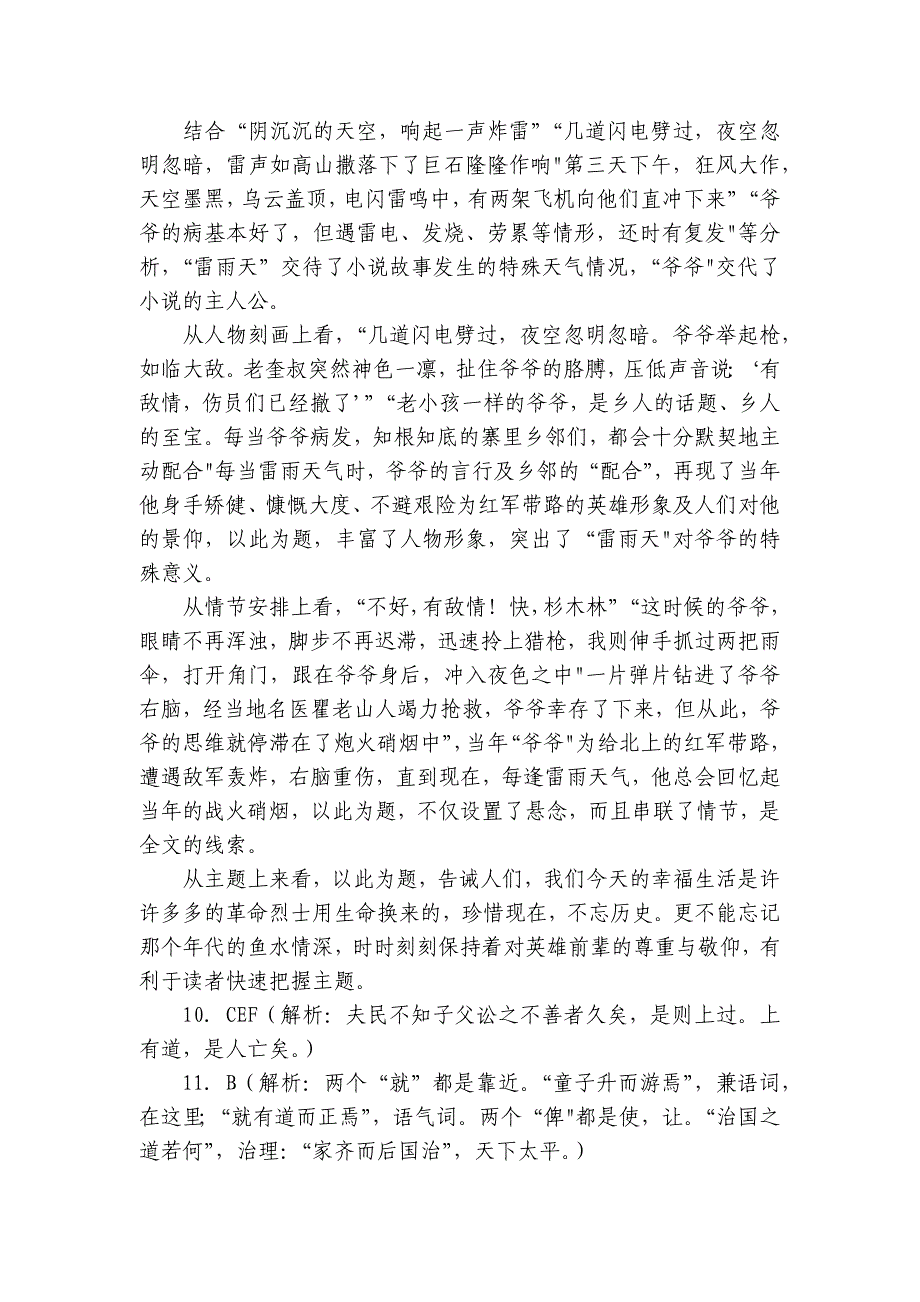 结合“阴沉沉的天空，响起一声炸雷”“几道闪电劈过，夜空忽
明忽暗，雷声如高山撒落下了巨石隆隆作响"第三天下午，狂风大作，
天空墨黑，乌云盖顶，电闪雷鸣中，有两架飞机向他们直冲下来”“爷
爷的病基本好了，但遇雷电、发烧、劳累等情形，还时有复发"等分
析，“雷雨天”交待了小说故事发生的特殊天气情况，“爷爷"交代了
小说的主人公。
从人物刻画上看，“几道闪电劈过，夜空忽明忽暗。爷爷举起枪，
如临大敌。老奎叔突然神色一凛，扯住爷爷的胳膊，压低声音说：‘有
敌情，伤员们已经撤了’”“老小孩一样的爷爷，是乡人的话题、乡人
的至宝。每当爷爷病发，知根知底的寨里乡邻们，都会十分默契地主
动配合"每当雷雨天气时，爷爷的言行及乡邻的“配合”，再现了当年
他身手矫健、慷慨大度、不避艰险为红军带路的英雄形象及人们对他
的景仰，以此为题，丰富了人物形象，突出了“雷雨天"对爷爷的特
殊意义。
从情节安排上看，“不好，有敌情！快，杉木林”“这时候的爷爷，
眼睛不再浑浊，脚步不再迟滞，迅速拎上猎枪，我则伸手抓过两把雨
伞，打开角门，跟在爷爷身后，冲入夜色之中"一片弹片钻进了爷爷
右脑，经当地名医瞿老山人竭力抢救，爷爷幸存了下来，但从此，爷
爷的思维就停滞在了炮火硝烟中”，当年“爷爷"为给北上的红军带路，
遭遇敌军轰炸，右脑重伤，直到现在，每逢雷雨天气，他总会回忆起
当年的战火硝烟，以此为题，不仅设置了悬念，而且串联了情节，是
全文的线索。
从主题上来看，以此为题，告诫人们，我们今天的幸福生活是许
许多多的革命烈士用生命换来的，珍惜现在，不忘历史。更不能忘记
那个年代的鱼水情深，时时刻刻保持着对英雄前辈的尊重与敬仰，有
利于读者快速把握主题。
10. CEF（解析：夫民不知子父讼之不善者久矣，是则上过。上
有道，是人亡矣。）
11. B（解析：两个“就”都是靠近。“童子升而游焉”，兼语词，
在这里；“就有道而正焉”，语气词。两个“俾"都是使，让。“治国之
道若何”，治理：“家齐而后国治”，天下太平。）